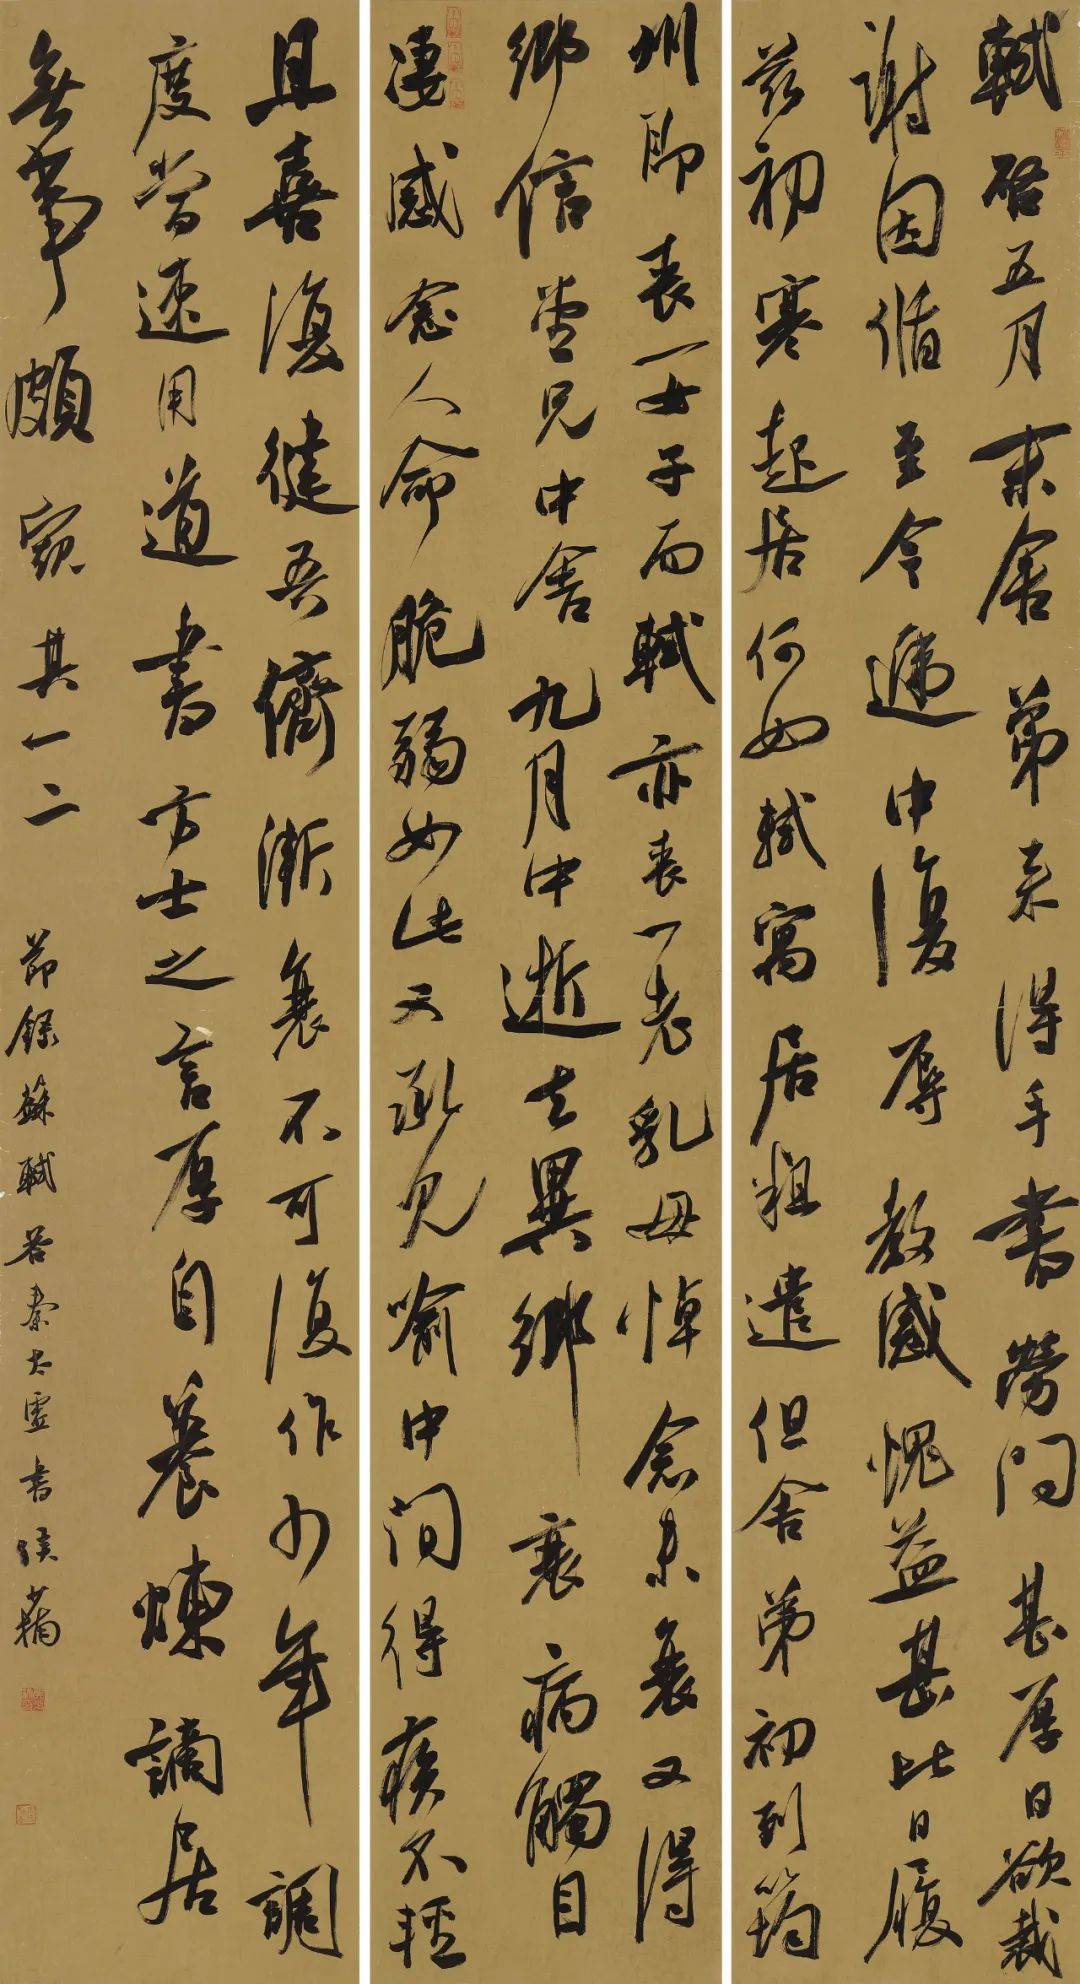 軾啓五月末舍弟來得手書勞問甚厚日欲裁
謝因循至今遞中復辱教感愧益甚比日履
茲初寒起居何如軾寓居粗遣但舍弟初到筠
州即喪一女子而軾亦喪一老乳母悼念未衰又得
鄉信堂兄中舍九月中逝去異鄉衰病觸目
淒感念人命脆弱如此又承見喻中間得疾不輕
且喜復健吾儕漸衰不可復作少年調
度當速用道書方士之言厚自養煉謫居
無事頗窺其一二
節錄蘇軾答秦太虛書